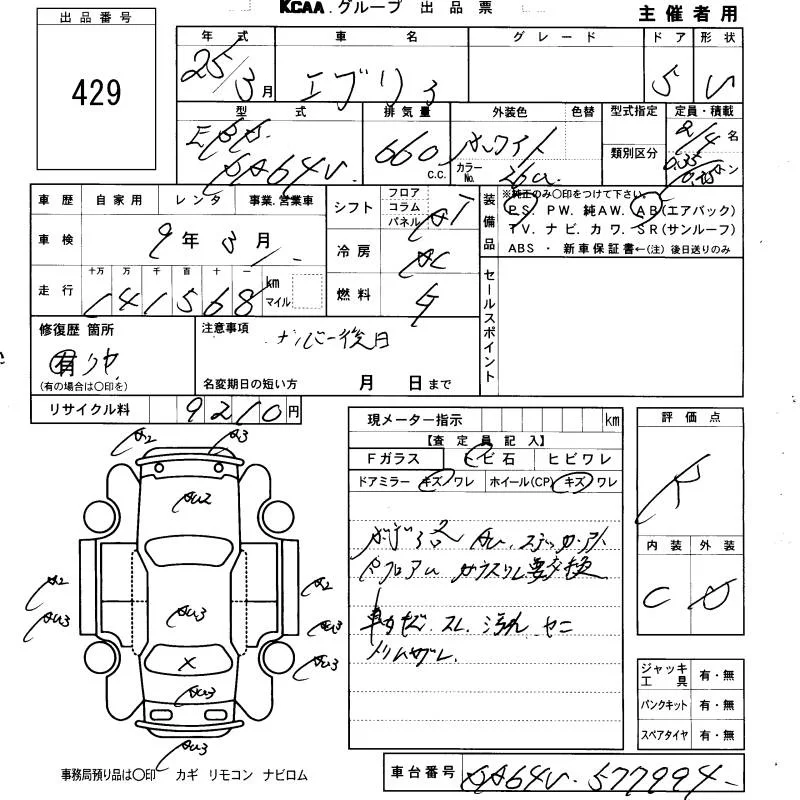 KCAA.グループ 出品票
主催者用
出品番号
429
年式 車名 グレード ドア 形状
25/3月 エブリィ 5 V
型式 排気量 外装色 色替 型式指定 定員・積載
EBD DA64V 660 C.C. ホワイト カラーNo. 26U 類別区分 2/4名
トン
車歴 自家用 レンタ 事業.営業車
シフト フロア コラム パネル AT
装備品 ※純正のみ〇印をつけて下さい。
PS. PW. 純AW. AB(エアバック)
TV. ナビ. カワ. SR(サンルーフ)
ABS ・ 新車保証書←(注) 後日送りのみ
車検 9年3月
冷房 AC
走行 十万 万 千 百 十 一
141568 km マイル
燃料 G
セールスポイント
修復歴 箇所
有 リヤ
(有の場合は〇印を)
注意事項
ナンバー後日
名変期日の短い方 月 日まで
リサイクル料 9210円
現メーター指示 km
評価点
R
【査定員記入】
Fガラス ヒビ石 ヒビワレ
ドアミラー キズ ワレ ホイール(CP) キズ ワレ
A2 A3
AU2
内装 外装
C D
A2 AU3
AU3
A2 AU3 AU3
X
AU3
AU3
ガラスリヤ要交換
車内 スレ 汚れ ヤニ
ジャッキ工具 有・無
パンクキット 有・無
スペアタイヤ 有・無
事務局預り品は〇印 カギ リモコン ナビロム
車台番号 DA64V-577994